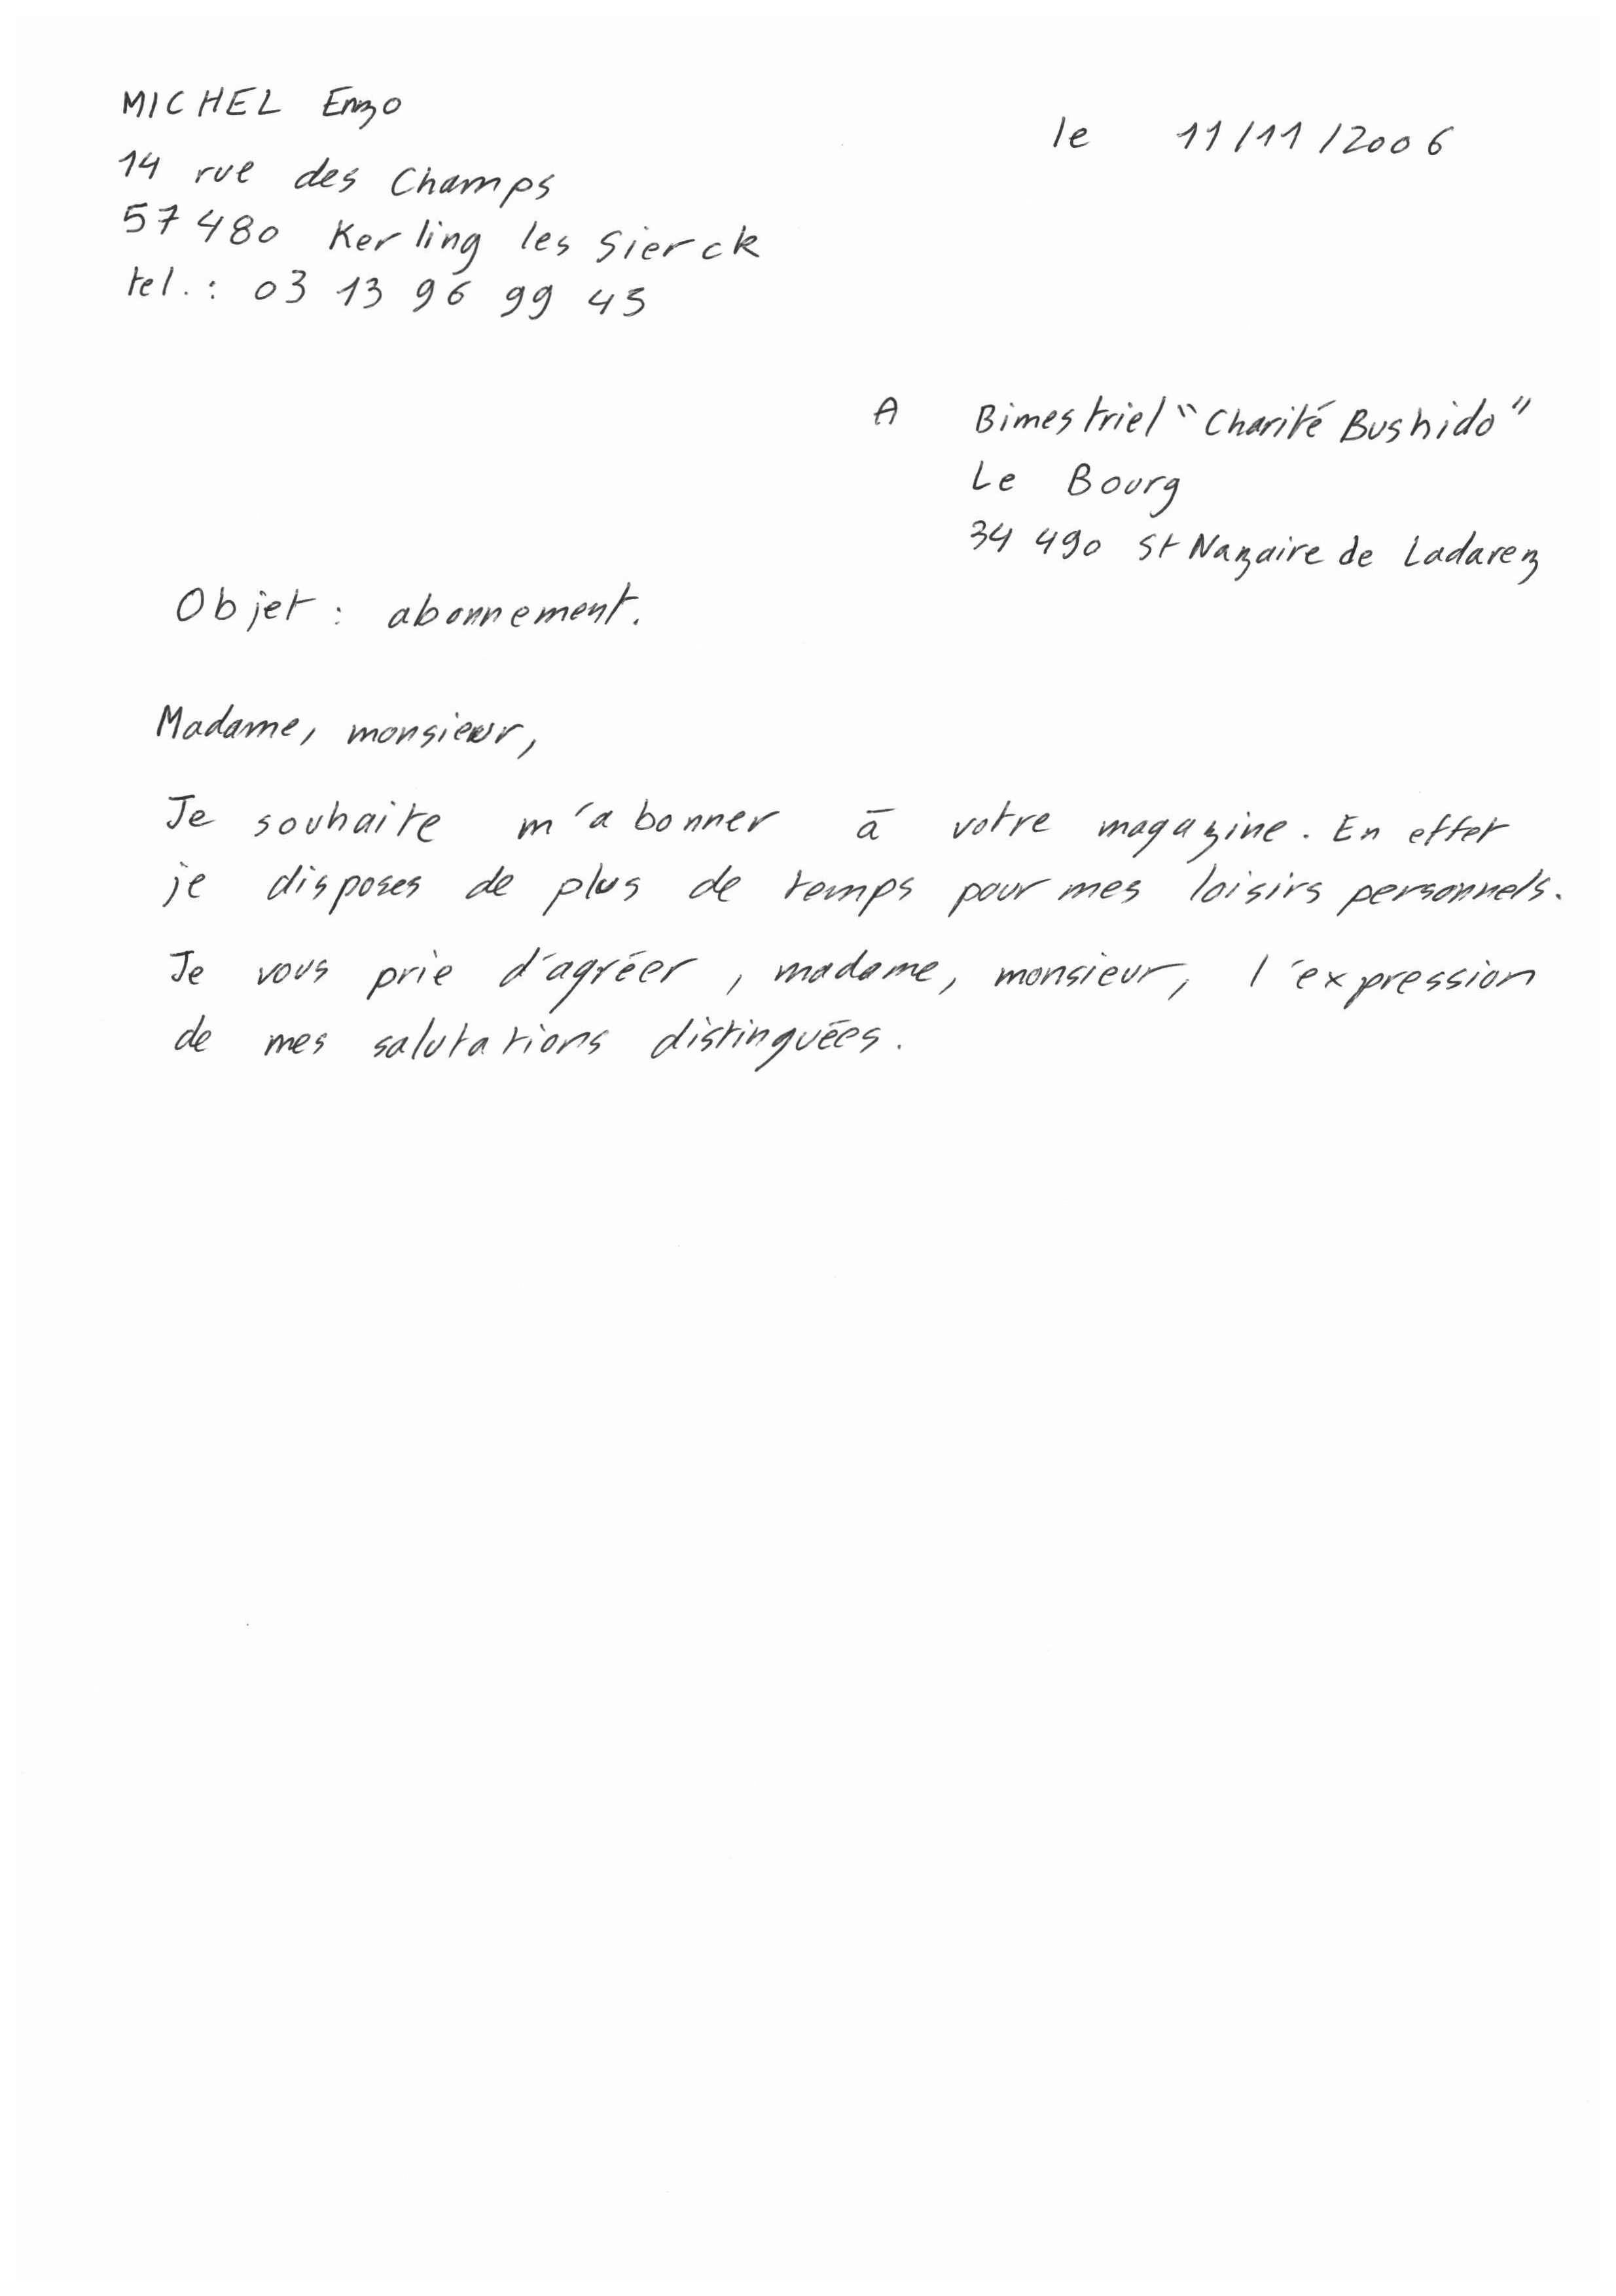 MICHEL Enzo
le 11/11/2006
14 rue des Champs
57480 Kerling les Sierck
tel.: 03 13 96 99 45
A Bimestriel "Charité Bushido"
Le Bourg
34 490 St Nazaire de Ladarez
Objet : abonnement.
Madame, monsieur,
Je souhaite m'abonner à votre magazine. En effet
je disposes de plus de temps pour mes loisirs personnels.
Je vous prie d'agréer, madame, monsieur, l'expression
de mes salutations distinguées.